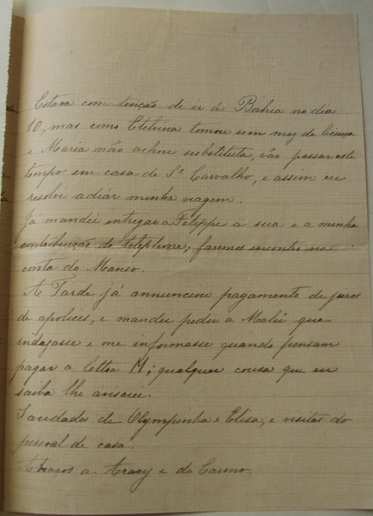 Estava com tenção de ir á Bahia no dia
10, mas como Etelvina tomou um mez de licença
e Maria não achou substituta, vão passar este
tempo em casa de Sr. Carvalho, e assim eu
resolvi adiar minha viagem.
Já mandei entregar a Felippe a sua e a minha
contribuição do telephone, faremos encontro na
conta do Manso.
A Tarde já annunciou pagamento de juros
de apolices, e mandei pedir a Malú que
indagasse e me informasse quando pensam
pagar a lettra M; qualquer cousa que eu
saiba lhe avisarei.
Saudades de Olympinha e Elisa, e visitas do
pessoal de casa.
Abraços a Aracy e do Carmo,